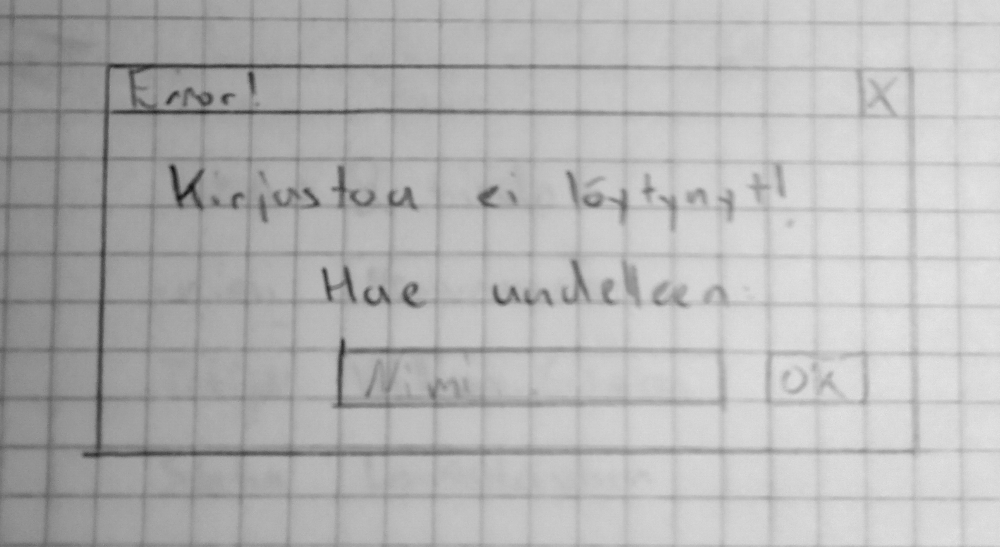 Error! X
Kirjastoa ei löytynyt!
Hae undelleen
Nimi OK